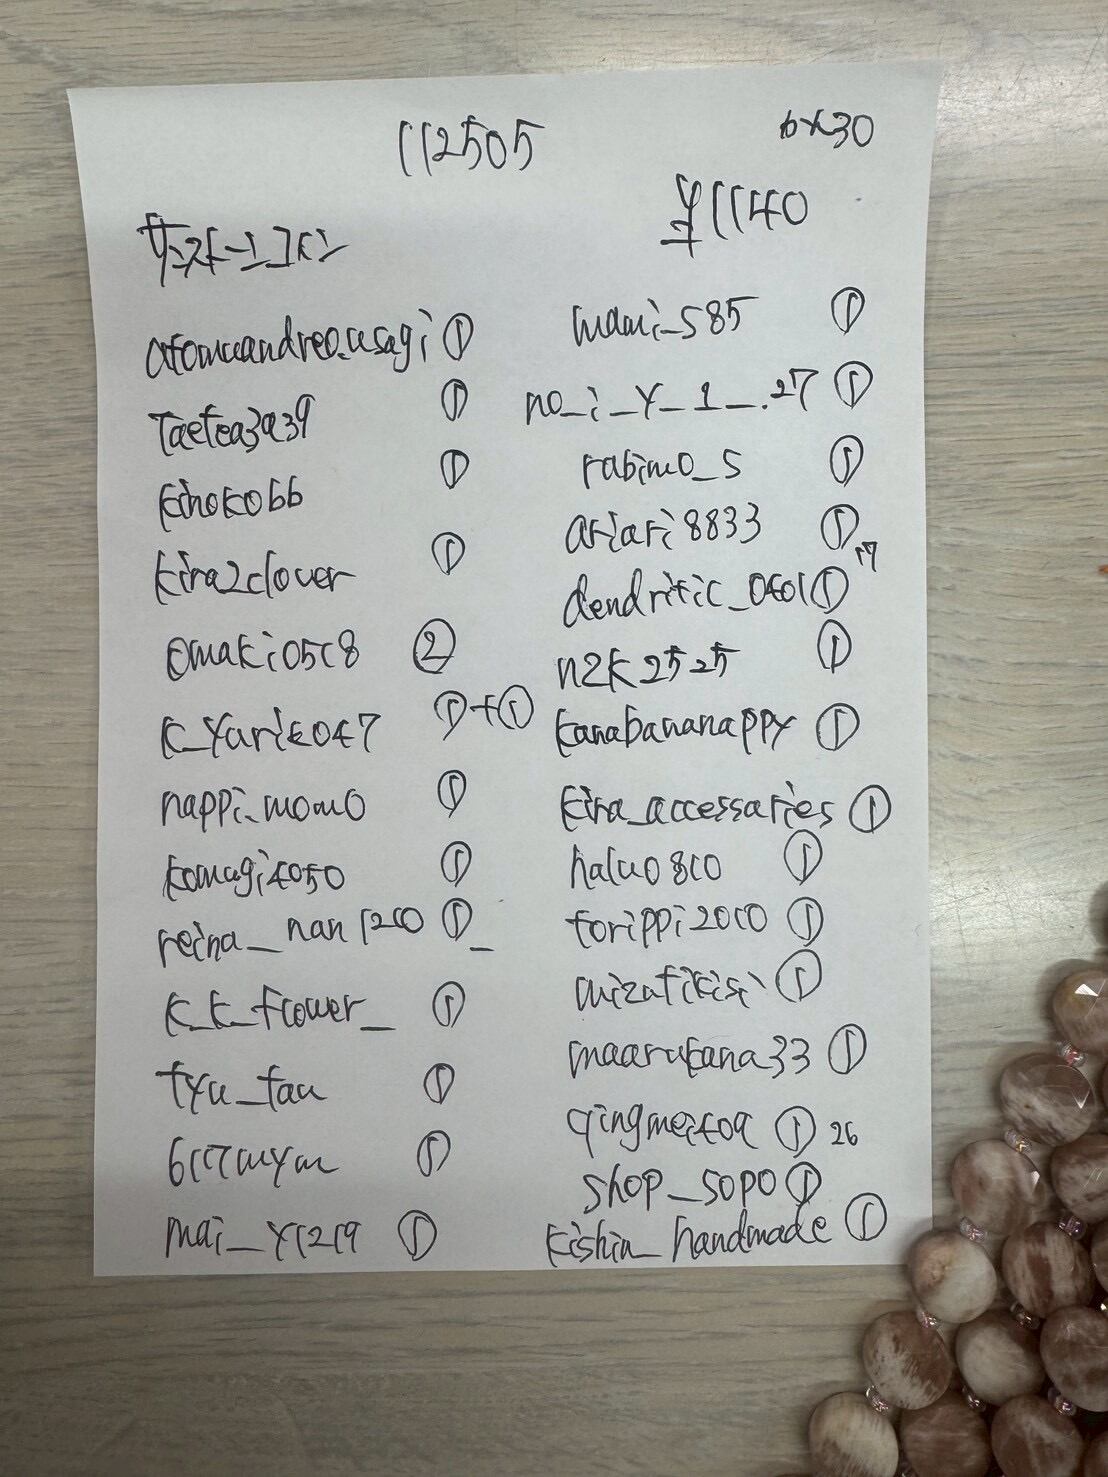 112505
6×30
¥1140
サンストーンコイン
atomuandreo.usagi ①
taetea3a39 ①
kinoko66 ①
kira2clover ①
omaki0518 ②
k_yuriko47 ①+①
nappi_momo ①
komagi4050 ①
reina_nan1210 ①_
k_k_flower_ ①
tyu_tau ①
6117mym ①
mai_y1219 ①
mami_585 ①
no_i_y_1__.27 ①
rabimo_s ①
ariari8833 ①
17
dendritic_0401 ①
n2k2525 ①
kanabananappy ①
kira_accessaries ①
halu0810 ①
torippi2010 ①
mizutikisi ①
maarukana33 ①
qingmei409 ① 26
shop_sopo ①
kishin_handmade ①